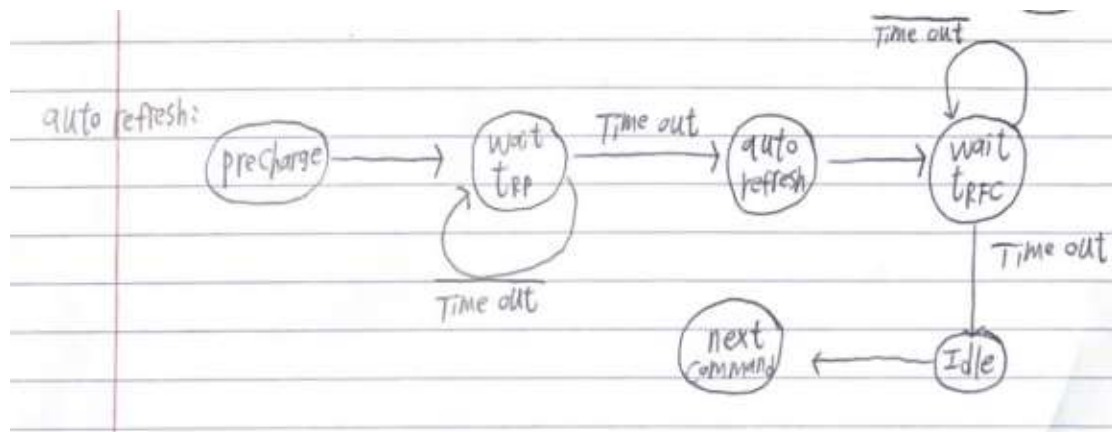 Time out
auto refresh:
precharge
wait
tRP
Time out
auto
refresh
wait
tRFC
Time out
Time out
next
command
Idle